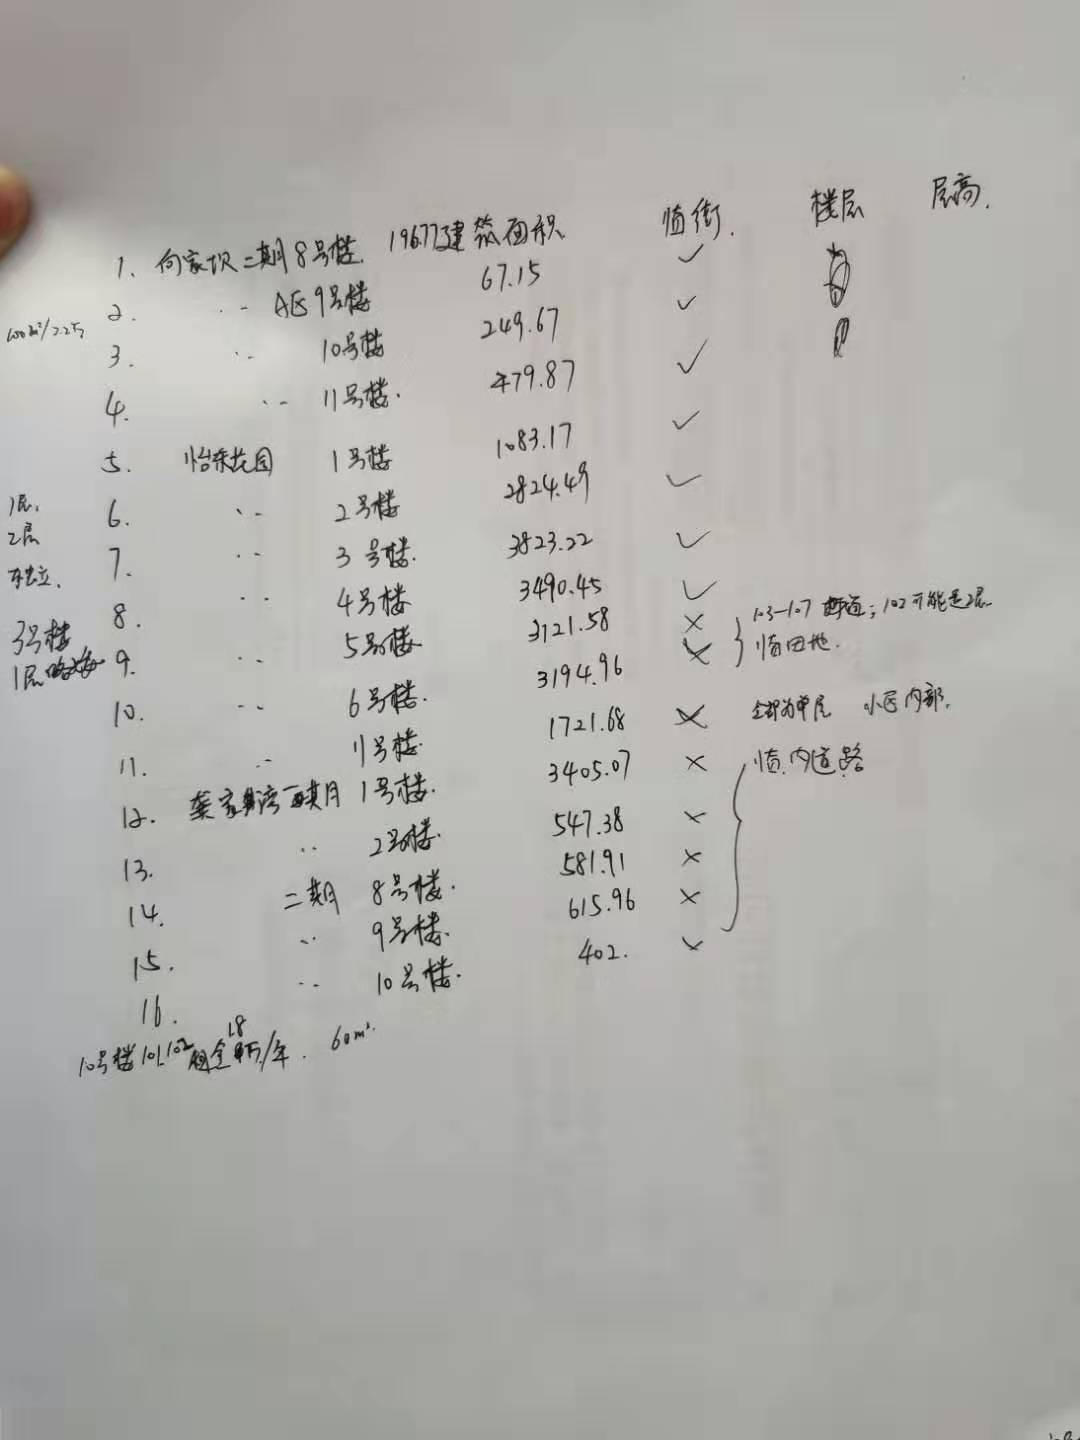 19677建筑面积 临街. 楼层 层高.
1. 向家坎二期8号楼. 67.15 ✓
2. ·· A区9号楼 249.67 ✓
3. ·· 10号楼 479.87 ✓
4. ·· 11号楼. 1083.17 ✓
5. 怡乐花园 1号楼 2824.49 ✓
6. ·· 2号楼 3823.22 ✓
7. ·· 3号楼. 3490.45 ✓
8. ·· 4号楼 3121.58 ×
9. ·· 5号楼 3194.96 ×
103-107 ; 102可能是2层.
临田地.
10. ·· 6号楼. 1721.68 × 全部为单层 小区内部.
11. ·· 11号楼 3405.07 × 临.内道路
12. 龚家湾一期 1号楼. 547.38 ×
13. ·· 2号楼. 581.91 ×
14. 二期 8号楼. 615.96 ×
15. ·· 9号楼. 402. ×
16. ·· 10号楼.
10号楼101.102 租金1.8万/年. 60m².
1层.
2层
独立.
3号楼
1层